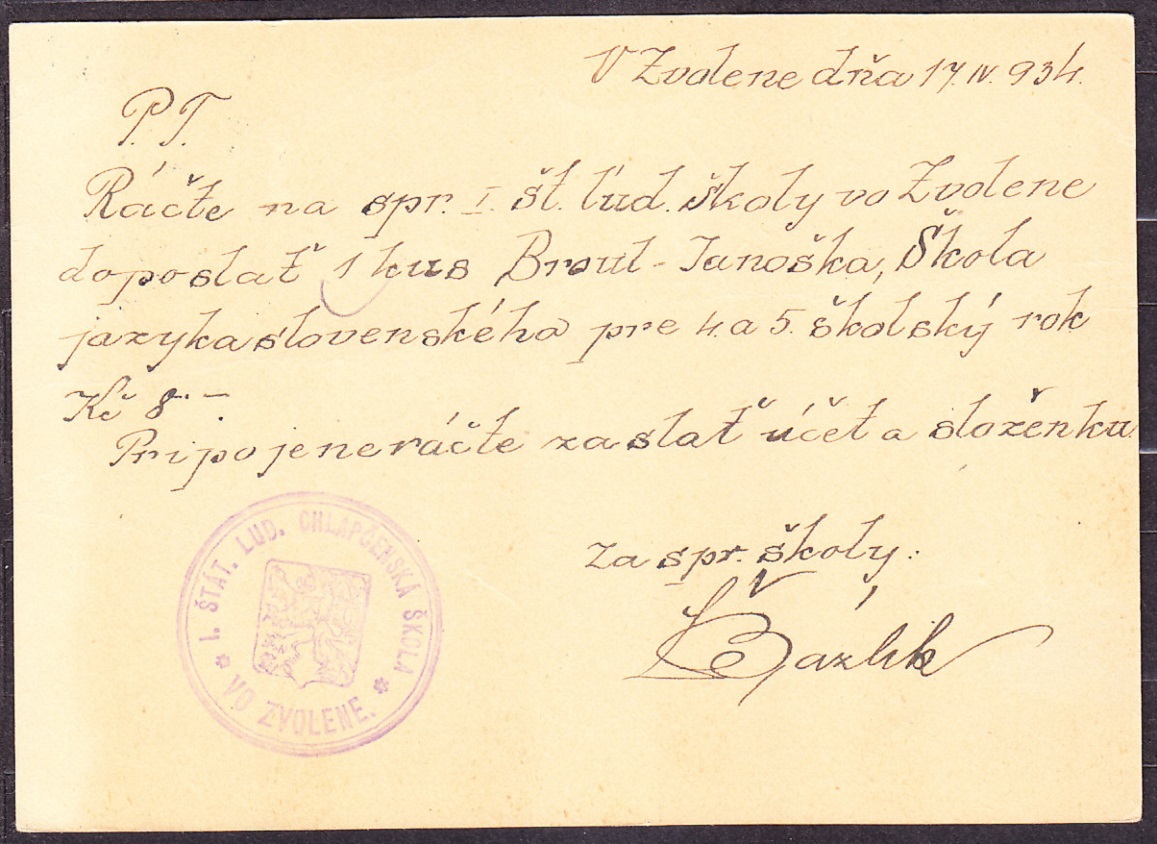 V Zvolene dňa 17.IV. 934.
P.T.
Ráčte na spr. I. št. ľud. školy vo Zvolene
doposlať 1 kus Brout - Janoška, Škola
jazyka slovenského pre 4. a 5. školský rok
Kč 8·–.
Pripojene ráčte zaslať účet a složenku
za spr. školy:
I. ŠTÁT. LUD. CHLAPČENSKÁ ŠKOLA
* VO ZVOLENE. *